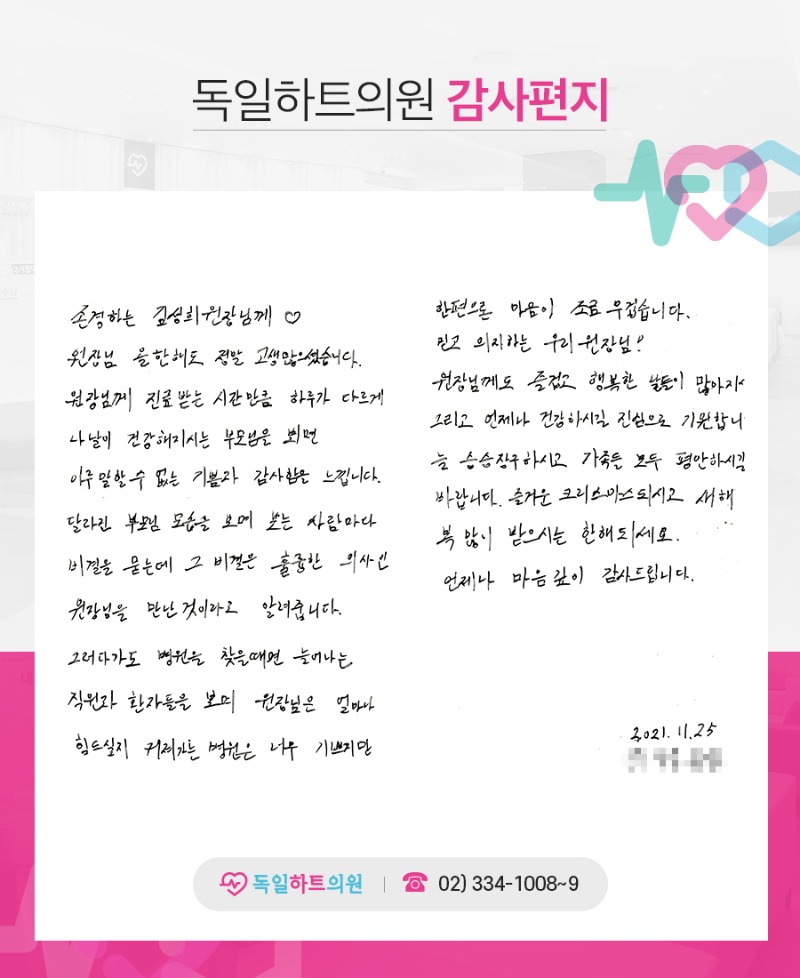 독일하트의원 감사편지
존경하는 김성희 원장님께 ♡
원장님 올한해도 정말 고생많으셨습니다.
원장님께 진료받는 시간만큼 하루가 다르게
나날이 건강해지시는 부모님을 뵈면
이루 말할 수 없는 기쁨과 감사함을 느낍니다.
달라진 부모님 모습을 보며 보는 사람마다
비결을 묻는데 그 비결은 훌륭한 의사인
원장님을 만난 것이라고 알려줍니다.
그러다가도 병원을 찾을때면 늘어나는
직원과 환자들을 보며 원장님은 얼마나
힘드실지 커져가는 병원은 너무 기쁘지만
한편으론 마음이 조금 무겁습니다.
믿고 의지하는 우리 원장님!
원장님께도 즐겁고 행복한 날들이 많아지
그리고 언제나 건강하시길 진심으로 기원합니
늘 승승장구하시고 가족들 모두 평안하시길
바랍니다. 즐거운 크리스마스되시고 새해
복 많이 받으시는 한해되세요.
언제나 마음 깊이 감사드립니다.
2021. 11. 25
독일하트의원 02) 334-1008~9